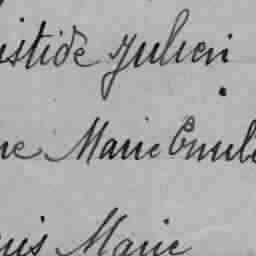 istide Julien
ne Marie Emile
uis Marie